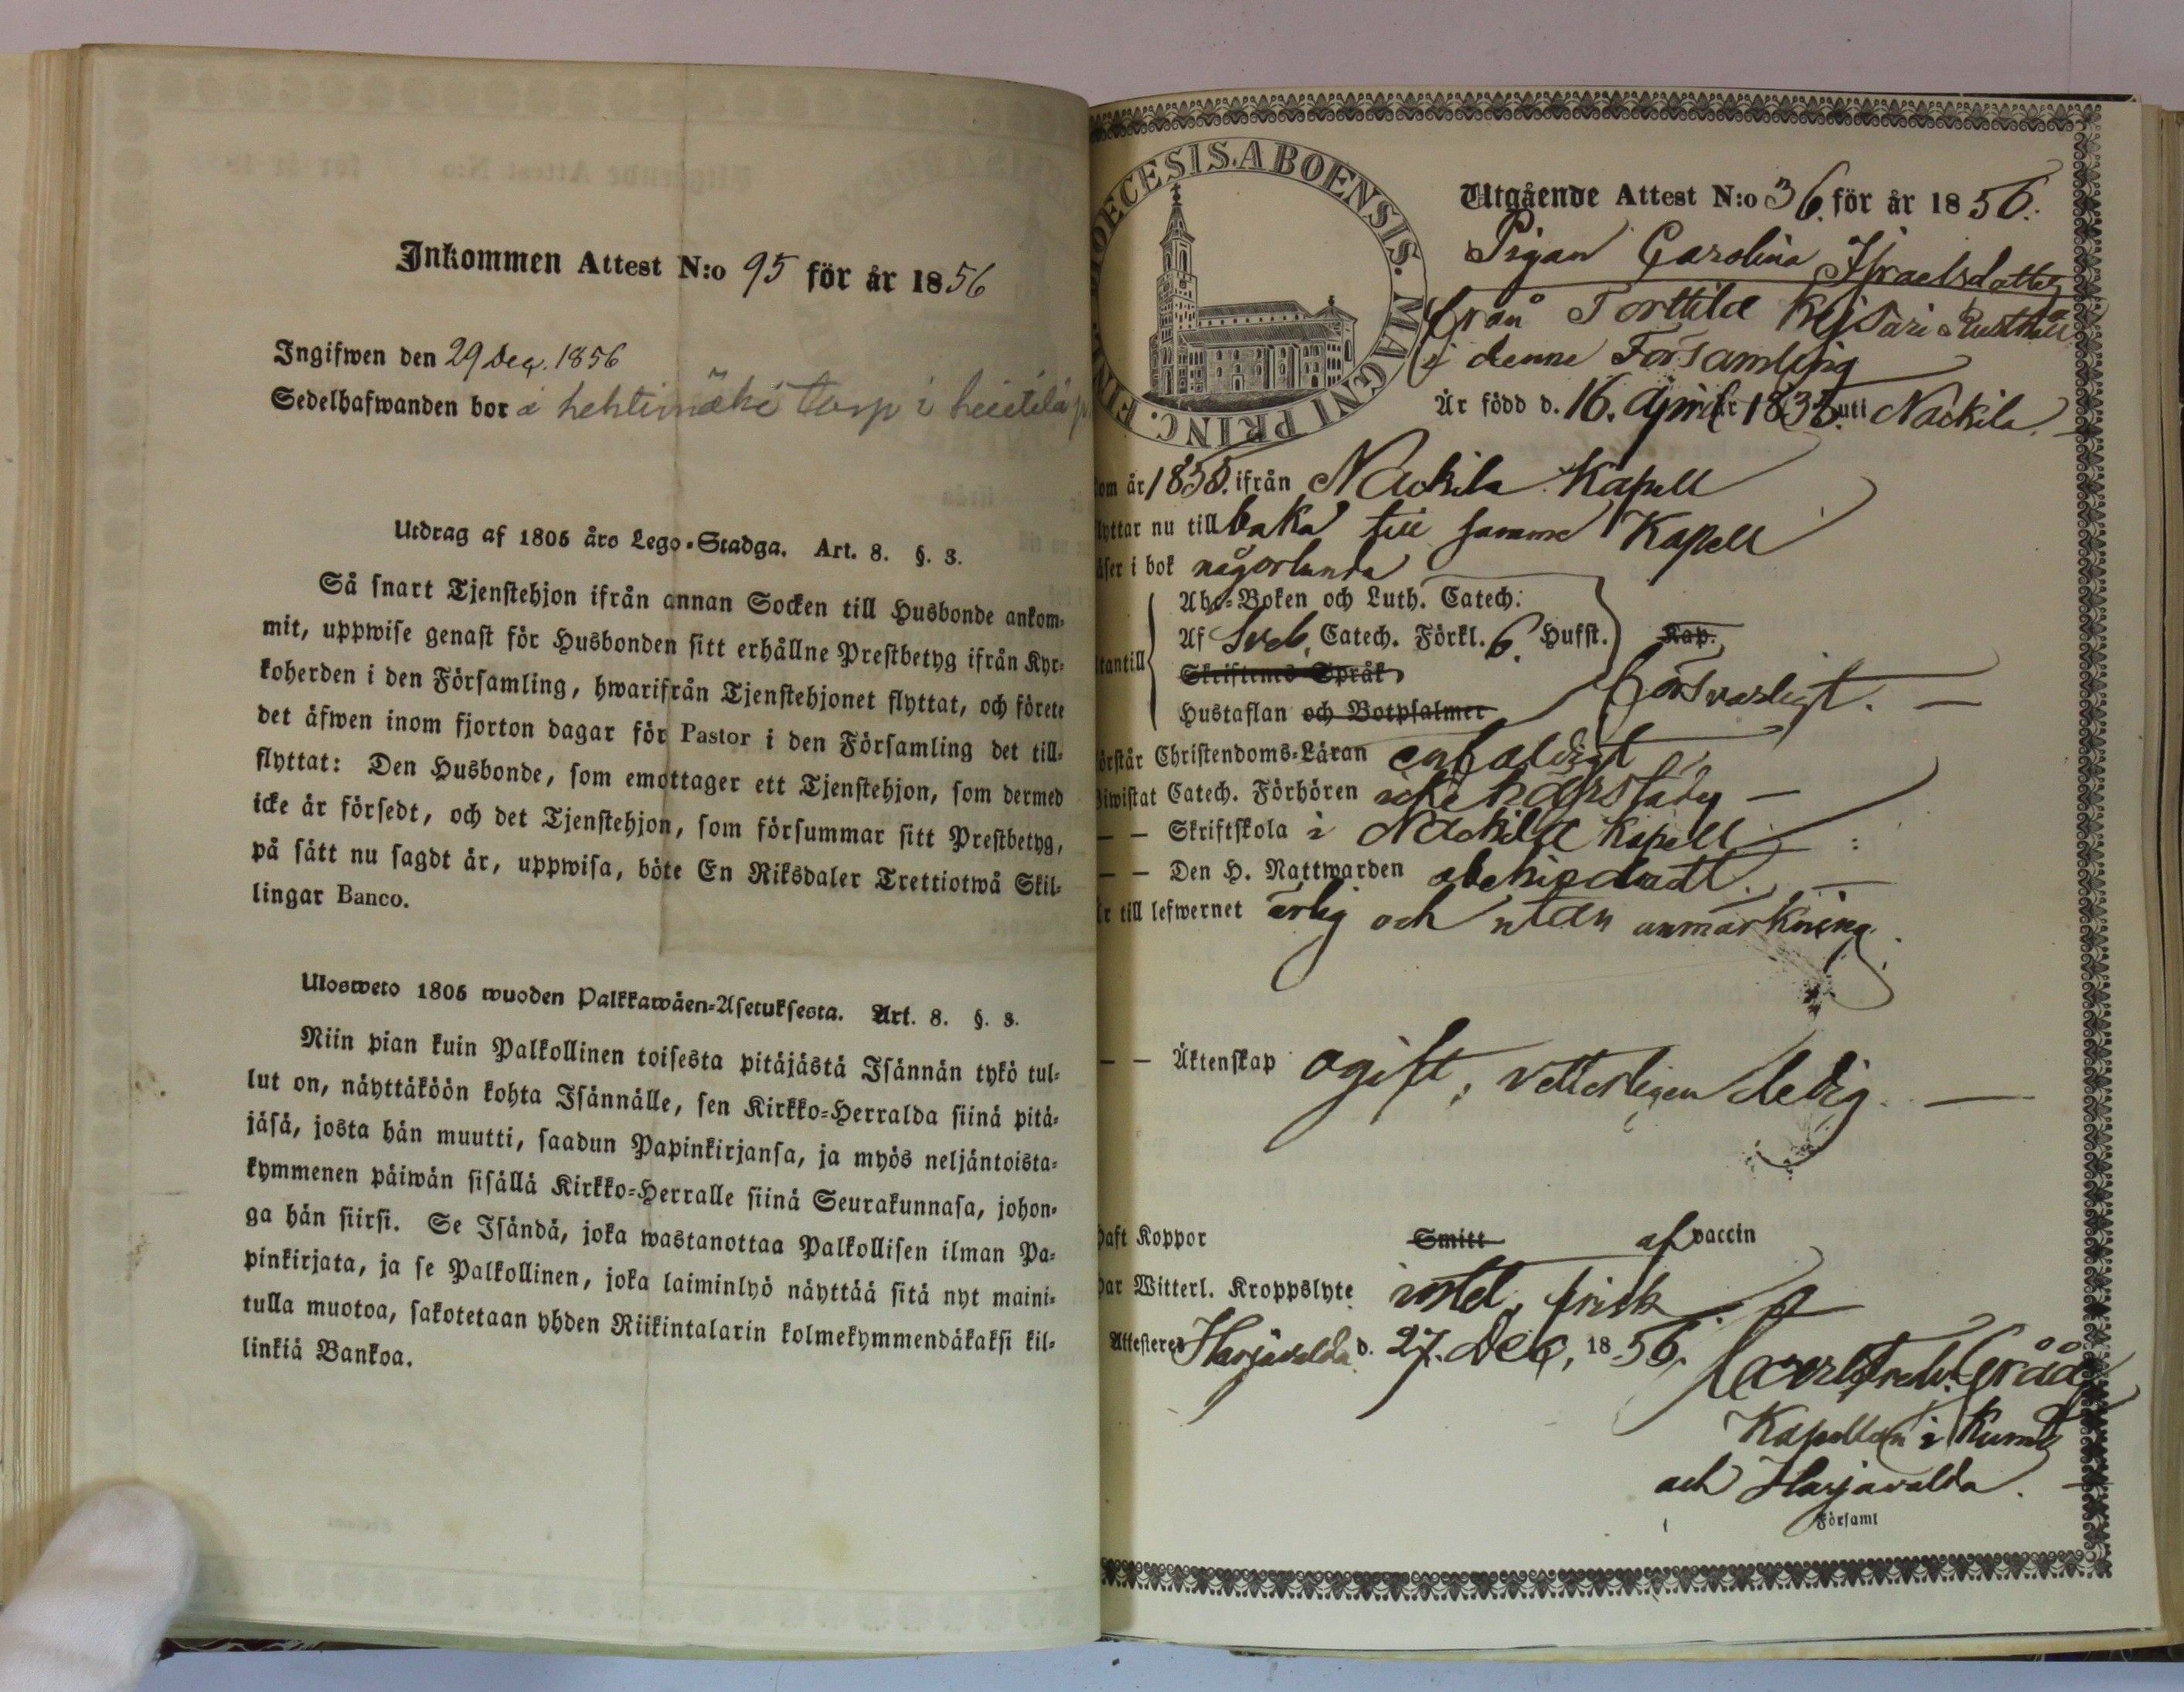 Inkommen Attest N:o 95 för år 1856
Ingifwen den 29 Dec. 1856
Sedelhafwanden bor å torp i
Utdrag af 1805 års Lego-Stadga. Art. 8. §. 3.
Så snart Tjenstehjon ifrån annan Socken till Husbonde ankom-
mit, uppwise genast för Husbonden sitt erhållne Prestbetyg ifrån Kyr-
koherden i den Församling, hwarifrån Tjenstehjonet flyttat, och förete
det äfwen inom fjorton dagar för Pastor i den Församling det till-
flyttat: Den Husbonde, som emottager ett Tjenstehjon, som dermed
icke är försedt, och det Tjenstehjon, som försummar sitt Prestbetyg,
på sätt nu sagdt är, uppwisa, böte En Riksdaler Trettiotwå Skil-
lingar Banco.
Ulosweto 1805 wuoden Palkkawäen-Asetuksesta. Art. 8. §. 3.
Niin pian kuin Palkollinen toisesta pitäjästä Isännän tykö tul-
lut on, näyttäköön kohta Isännälle, sen Kirkko-Herralda siinä pitä-
jäsä, josta hän muutti, saadun Papinkirjansa, ja myös neljäntoista-
kymmenen päiwän sisällä Kirkko-Herralle siinä Seurakunnasa, johon-
ga hän siirsi. Se Isändä, joka wastanottaa Palkollisen ilman Pa-
pinkirjata, ja se Palkollinen, joka laiminlyö näyttää sitä nyt maini-
tulla muotoa, sakotetaan yhden Riikintalarin kolmekymmendäkaksi kil-
linkiä Bankoa.
DIOECESIS ABOENSIS. MAGNI PRINC. FINL.
Utgående Attest N:o 36. för år 1856.
Pigan Carolina Israelsdotter
från Torttila Keisari Rusthåll
i denna Församling
Är född d. 16. April år 1835. uti Nackila.
kom år 1855. ifrån Nackila Kapell
flyttar nu tillbaka till samma Kapell
läser i bok någorlunda
Abc-Boken och Luth. Catech.
Af Sveb. Catech. Förkl. 6. Hufst. Kap.
utantill Skriftens Språk
Hustaflan och Botpsalmer försvarligt.
förstår Christendoms-Läran enfaldigt
Biwistat Catech. Förhören icke härstädes
— — Skriftskola i Nackila Kapell
— — Den H. Nattwarden obehindradt.
är till lefwernet ärlig och utan anmärkning.
— — Äktenskap ogift, vetterligen ledig.
haft Koppor Smitt af vaccin
har Witterl. Kroppslyte intet, frisk
Attesteres Harjavalda d. 27. Dec, 1856.
Carl Fredr. Gråå
Kapellan i Kumo
och Harjavalda.
Församl